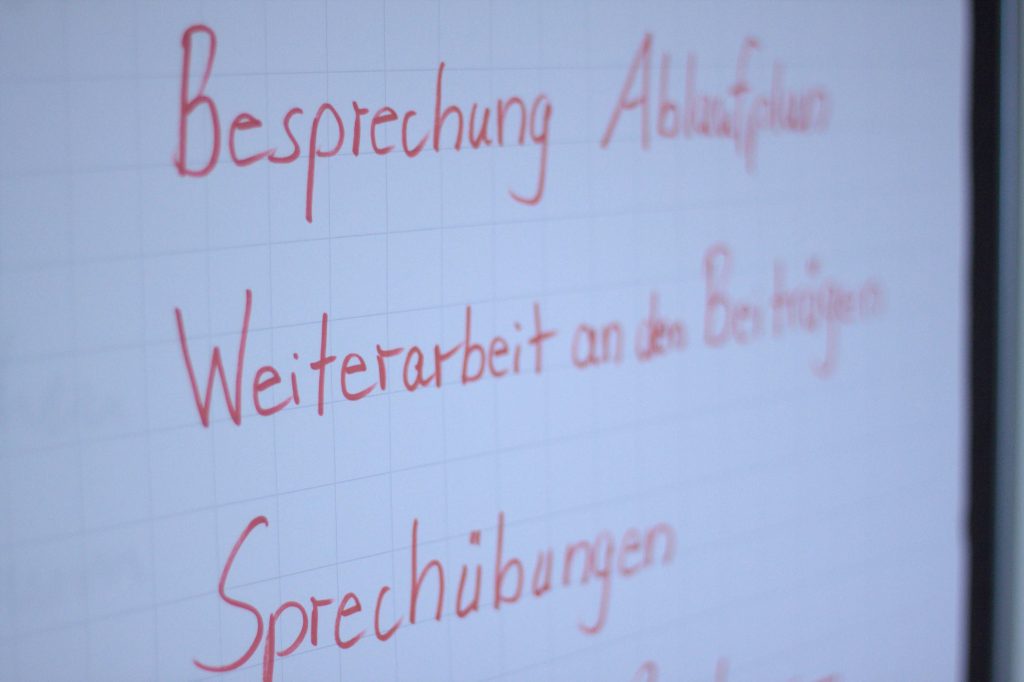 Besprechung Ablaufplan
Weiterarbeit an den Beiträgen
Sprechübungen